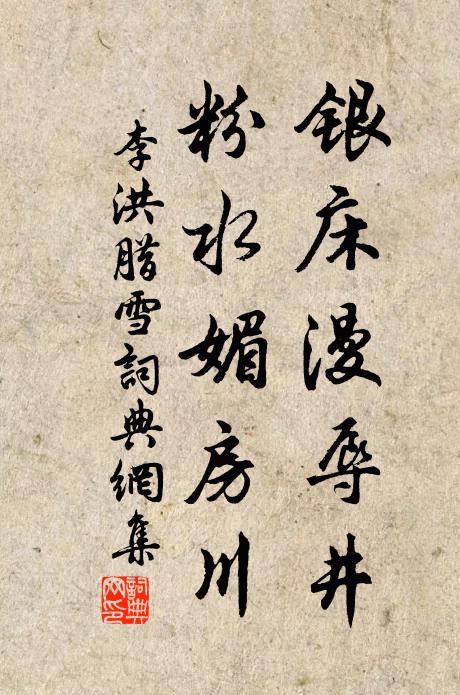 银床漫辱井
粉水媚房川
李洪腊雪詞典網集
詞典
网印